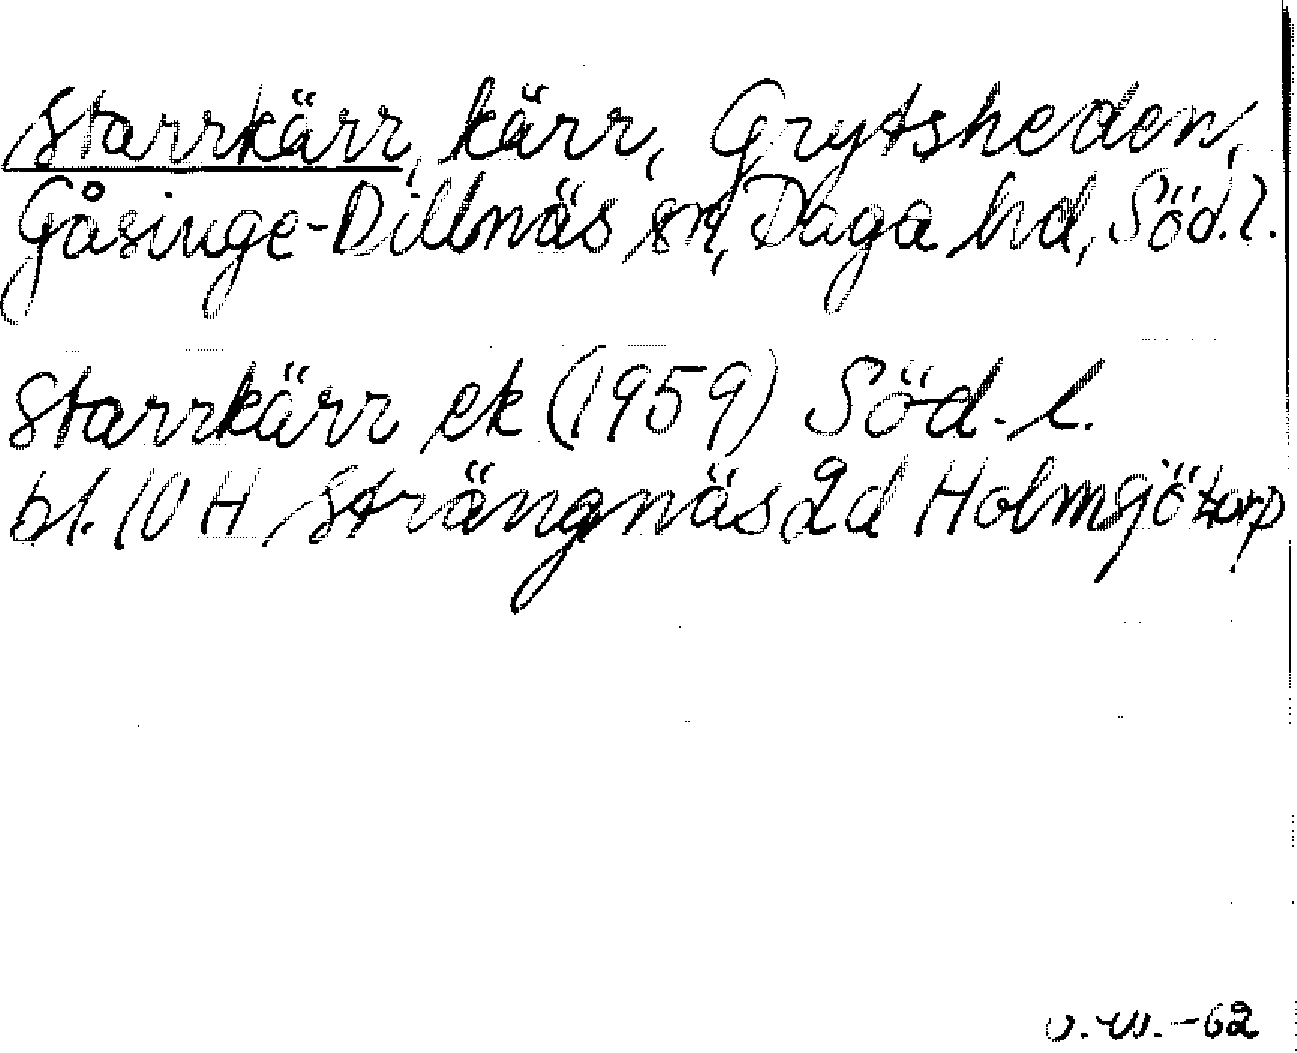 Starrkärr, kärr, Grytsheden,
Gåsinge-Dillnäs sn, Daga hd, Söd.l.
Starrkärr ek (1959) Söd.l.
bl. 10 H Strängnäs 2d Holmgötorp
-62